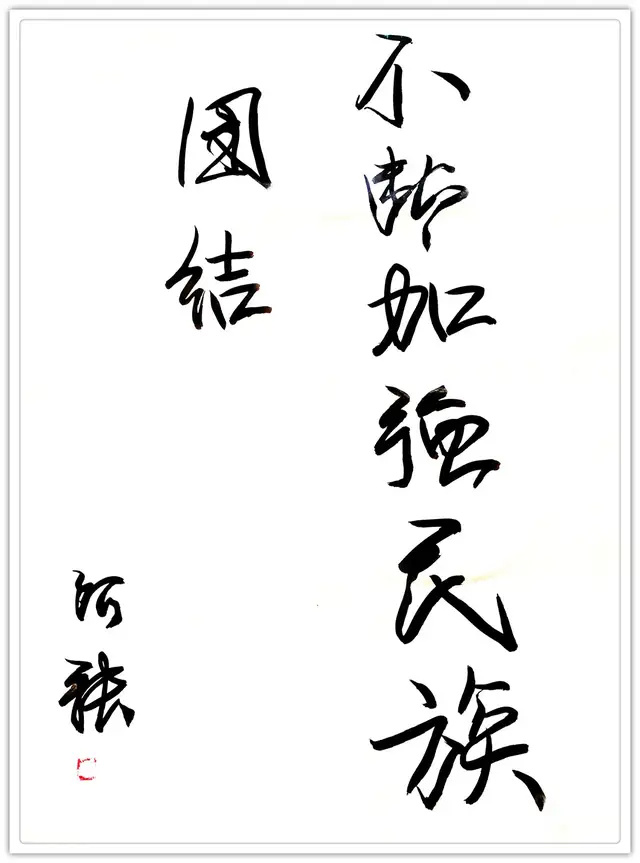 不断加强民族
团结